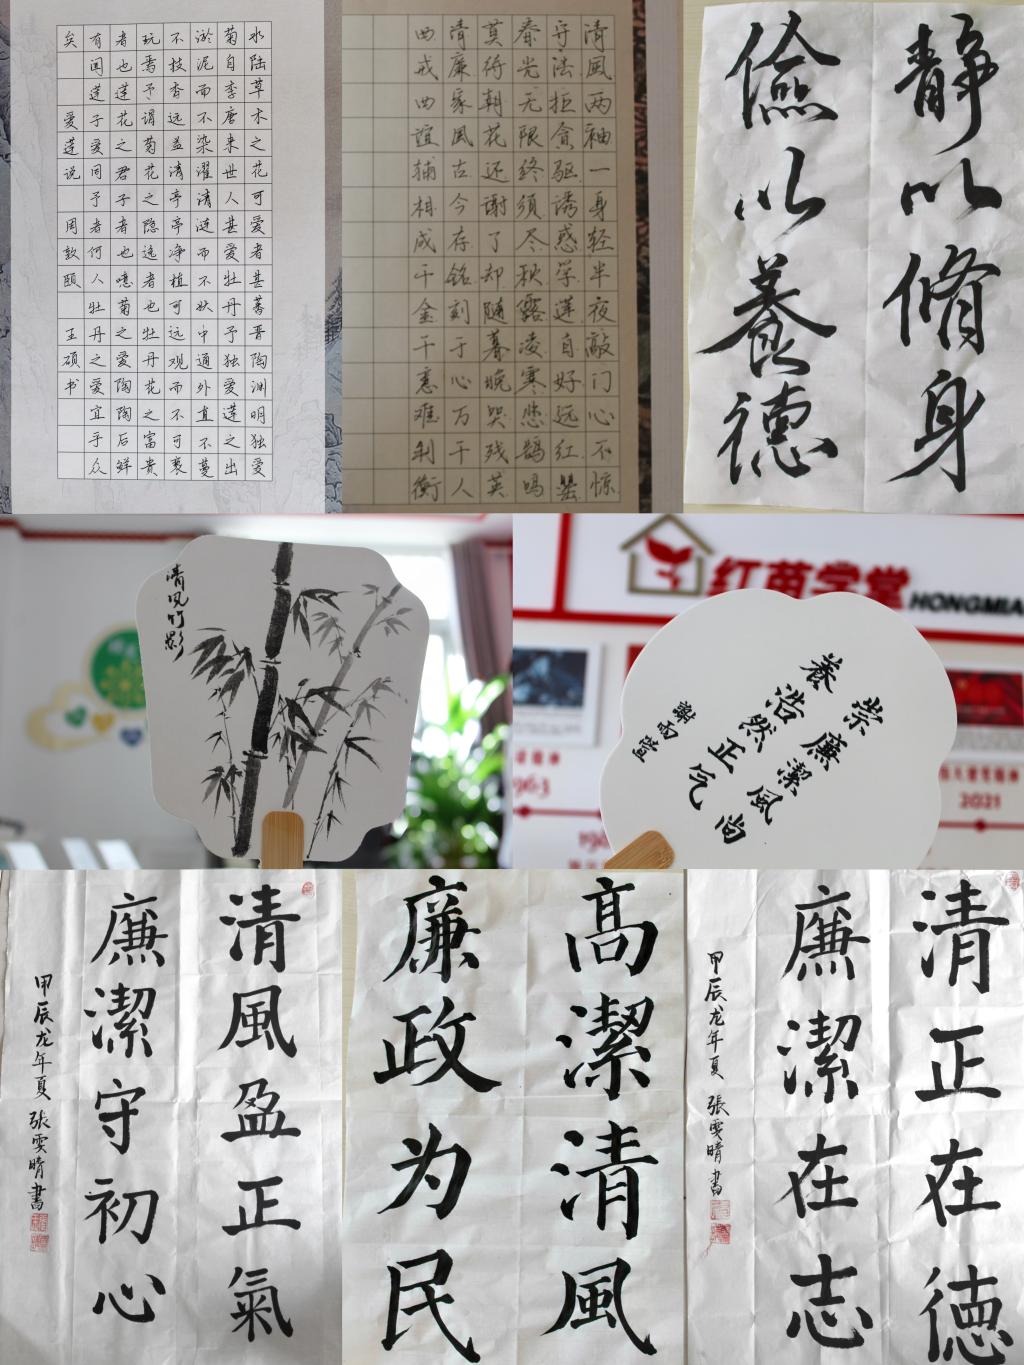 水陆草木之花可爱者甚蕃晋陶渊明独爱
菊自李唐来世人甚爱牡丹予独爱莲之出
淤泥而不染濯清涟而不妖中通外直不蔓
不枝香远益清亭亭净植可远观而不可亵
玩焉予谓菊花之隐逸者也牡丹花之富贵
者也莲花之君子者也噫菊之爱陶陶后鲜
有闻莲子爱同予者何人牡丹之爱宜乎众
矣 爱莲说 周敦颐 王硕书
清風两袖一身轻半夜敲门心不惊
守法拒贪驱诱惑学莲自好远红罂
春光无限终须尽秋露凌寒悲鹊鸣
莫待朝花还谢了却随暮晚哭残英
清廉家風古今存铭刻于心万千人
戒 谊辅相成千金千意难利衡
靜以脩身
儉以養德
清风竹影
红苗学堂
HONGMIA
崇廉潔風尚
養浩然正气
謝雨萱
1963
2021
清風盈正氣
廉潔守初心
甲辰龙年夏 张雯晴書
高潔清風
廉政为民
清正在德
廉潔在志
甲辰龙年夏 張雯晴書